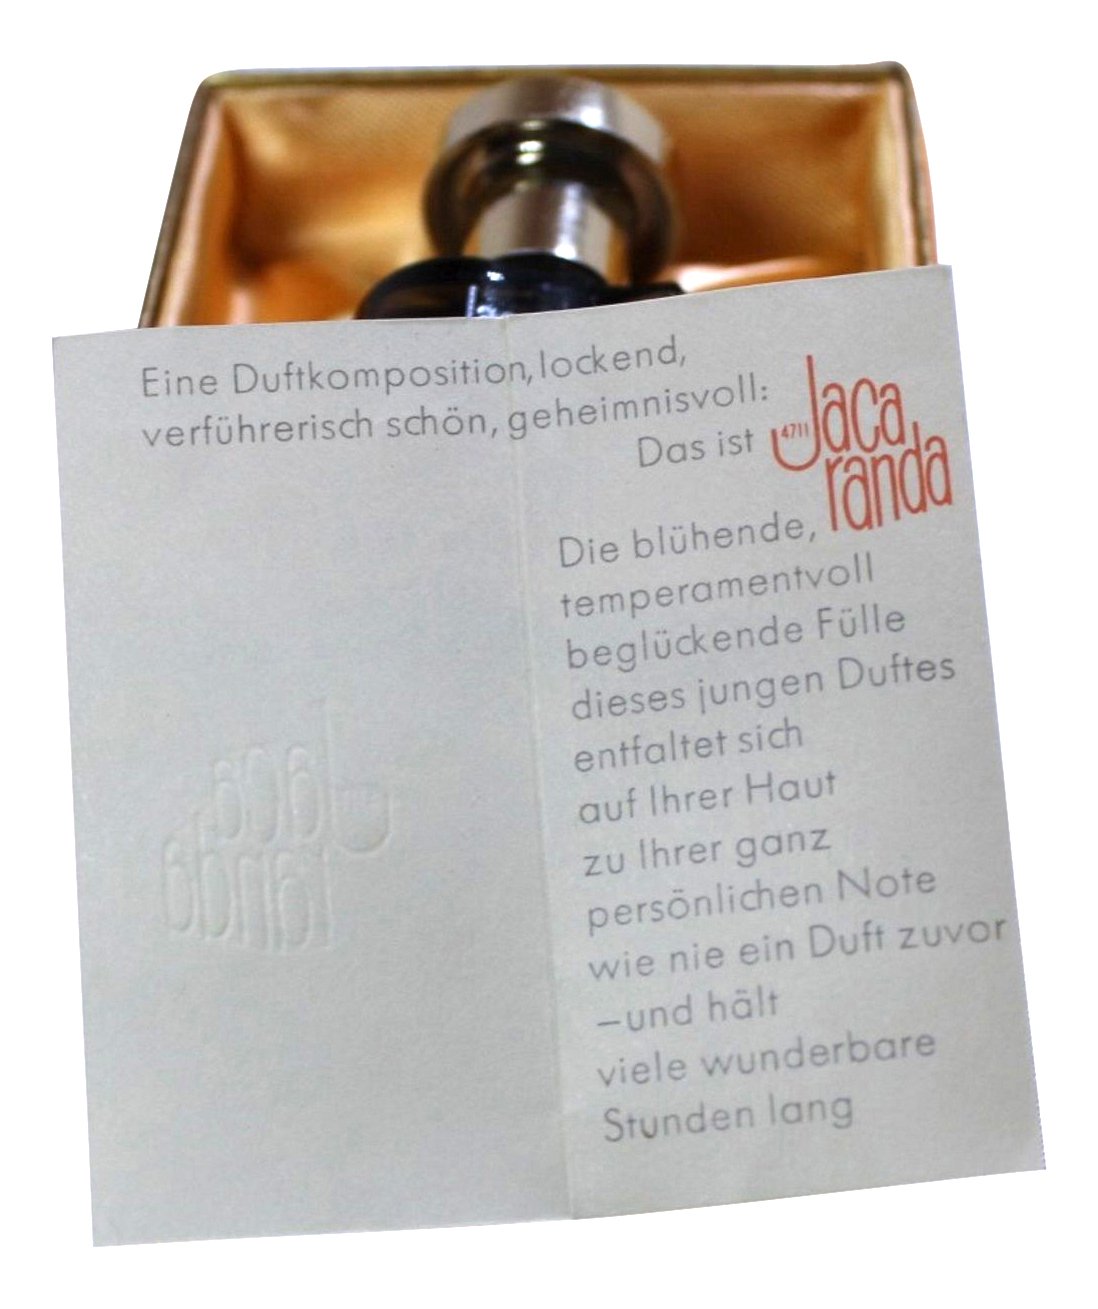 Eine Duftkomposition, lockend,
verführerisch schön, geheimnisvoll:
Das ist 4711 Jaca
randa
Die blühende,
temperamentvoll
beglückende Fülle
dieses jungen Duftes
entfaltet sich
auf Ihrer Haut
zu Ihrer ganz
persönlichen Note
wie nie ein Duft zuvor
–und hält
viele wunderbare
Stunden lang
Jaca
randa